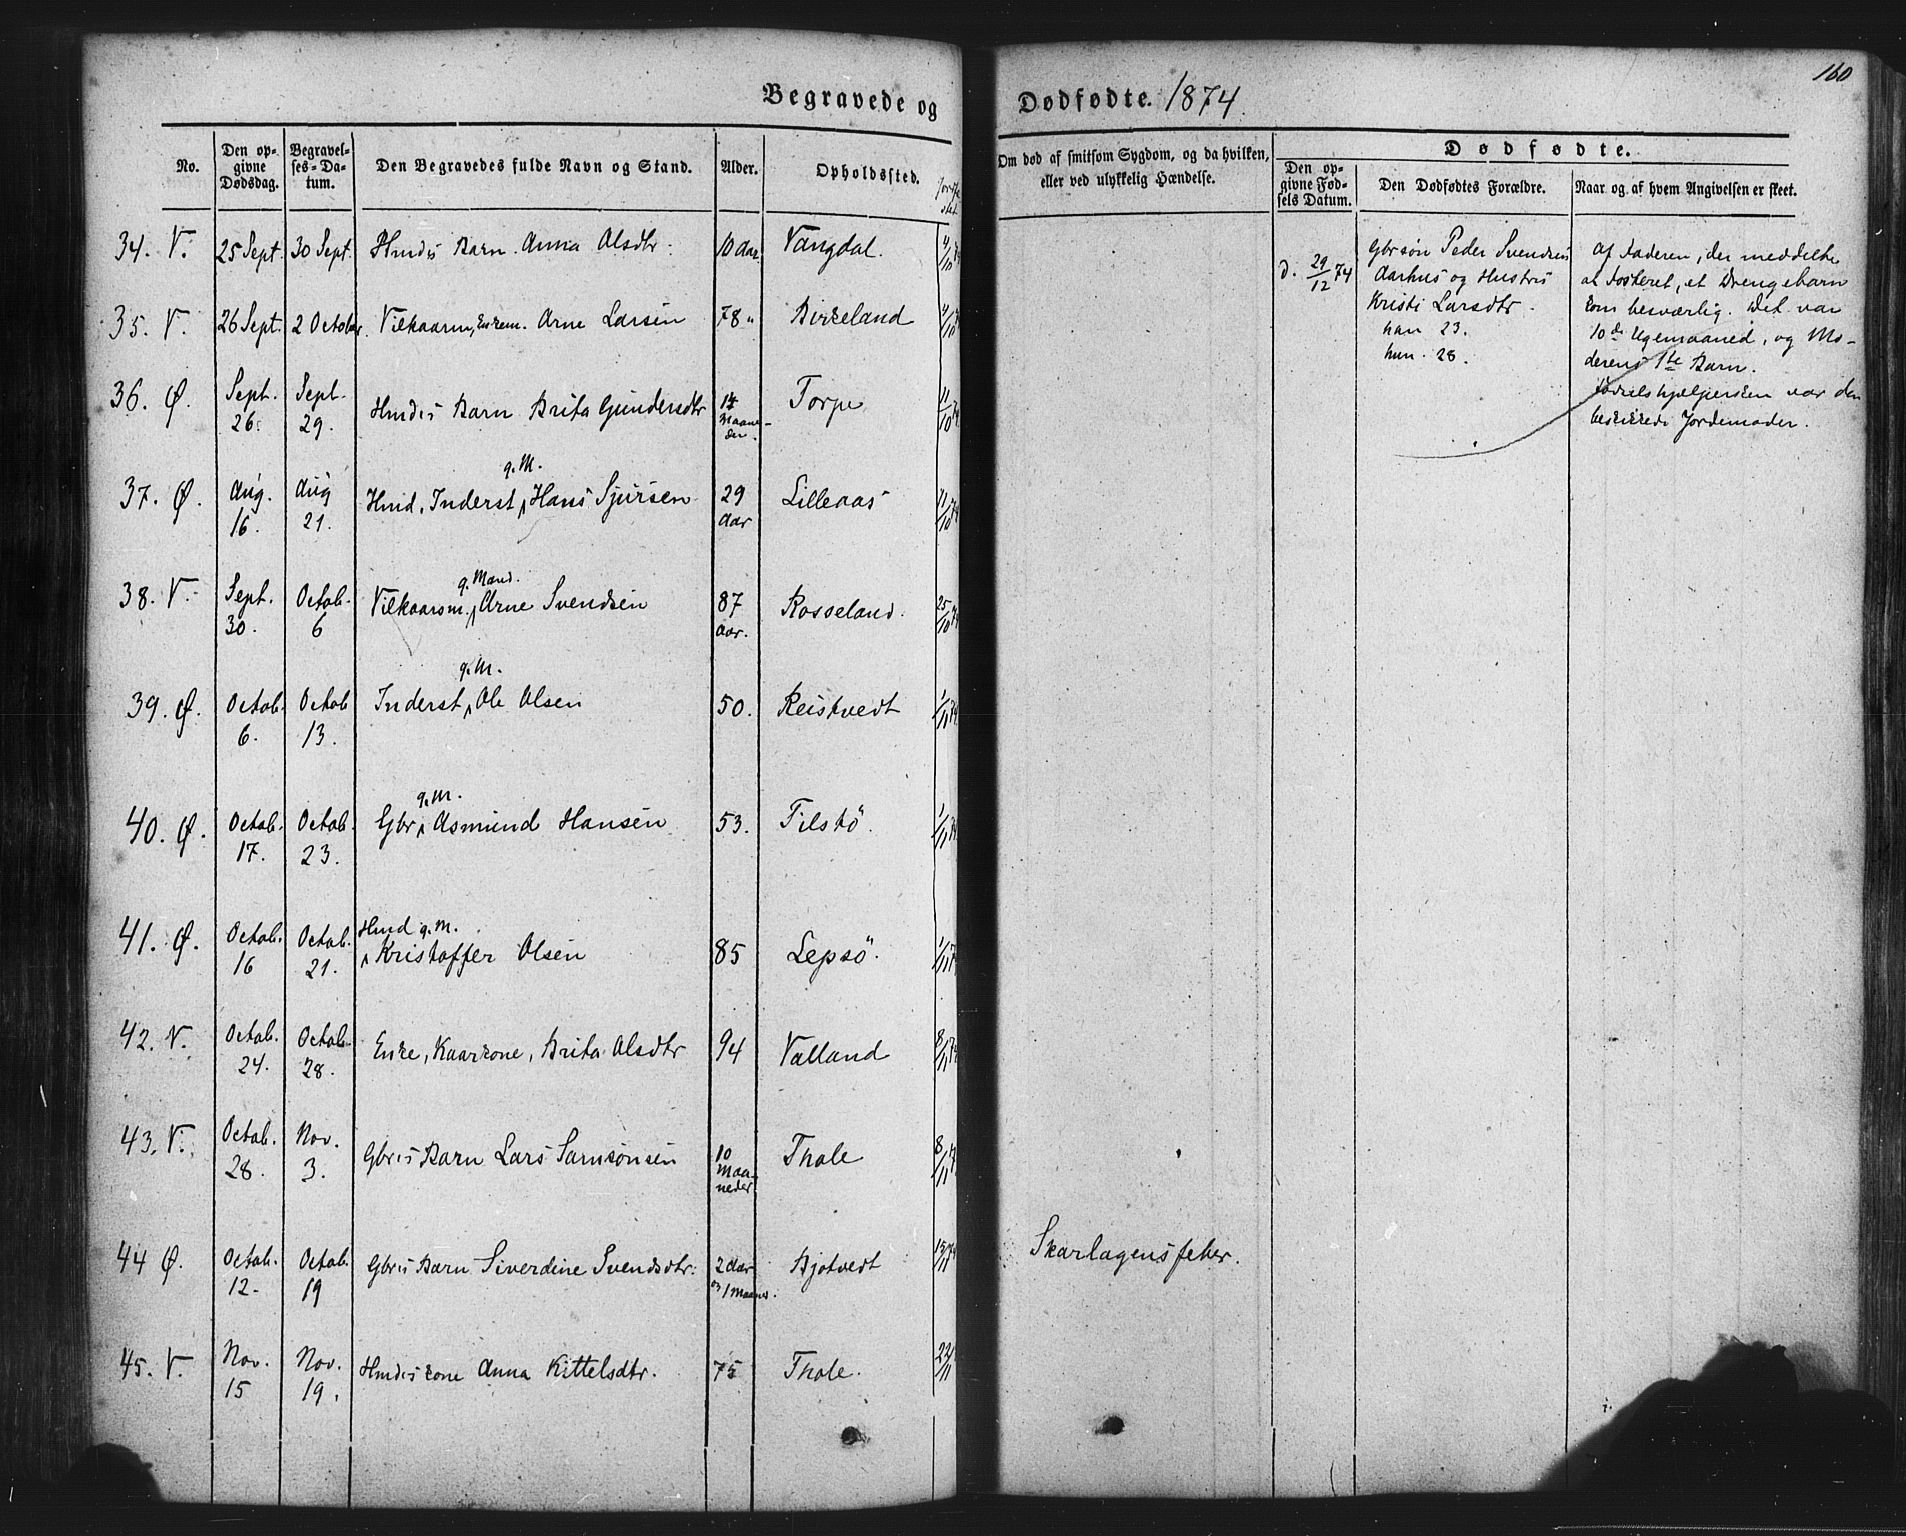 160
Begravede og Dødfødte. 1874.
No.
Den opgivne Dødsdag.
Begravelses-Datum.
Den Begravedes fulde Navn og Stand.
Alder.
Opholdssted.
Om død af smitsom Sygdom, og da hvilken, eller ved ulykkelig Hændelse.
Dødfødte.
Den opgivne Fødsels Datum.
Den Dødfødtes Forældre.
Naar og af hvem Angivelsen er skeet.
34. V. 25 Sept. 30 Sept. Hmds Barn Anna Olsdtr. 10 Aar. Vangdal. 4/10
35. V. 26 Sept. 2 October. Vilkaarm, Enkem. Arne Larsen 78 " Birkeland 4/10
36. Ø. Sept. 26. Sept. 29. Hmds Barn Brita Gundersdtr Maaneder. Torpe 11/10 74
37. Ø. Aug. 16. Aug 21. Hmd, Inderst, g. M. Hans Sjursen 29 Aar Lilleaas 11/10 74
38. V. Sept. 30. Octob. 6 Vilkaarsm. g. Mand. Arne Svendsen 87 Aar. Rosseland. 25/10 74
39. Ø. Octob. 6. Octob 13. Inderst, g. M. Ole Olsen 50. Reistvedt 1/11 74
40. Ø. Octob. 17. Octob. 23. Gbr, g. M. Asmund Hansen 53. Tilstö. 1/11 74
41. Ø. Octob. 16 Octob. 21. Hmd g. M. Kristoffer Olsen 85 Lepsö. 1/11 74
42. V. Octob. 24. Octob. 28. Enke, Kaarkone, Brita Olsdtr 94 Valland 8/11 74
43. V. Octob. 28. Nov. 3. Gbrs Barn Lars Samsönsen 10 Maaneder Thole 8/11 74
44 Ø. Octob. 12. Octob. 19 Gbrs Barn Siverdine Svendsdtr. 2 Aar og 1 Maaned. Bjotvedt Skarlagensfeber.
45. V. Nov. 15 Nov. 19. Hmds kone Anna Kittelsdtr. 75 Thole. 22/11
d. 29/12 74
Gbrsøn Peder Svendsen
Aarhus og Hustru
Kristi Larsdtr.
han 23.
hun. 28.
Af Faderen, der meddelte
at Fosteret, et Drengebarn
kom besværlig. Det var
10de Ugemaaned, og Mo-
derens 1ste Barn.
Fødselshjælpersken var den
beskikkede Jordemoder.